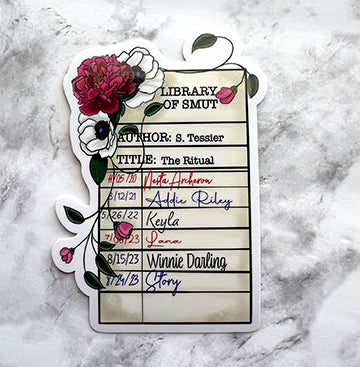 LIBRARY
OF SMUT
AUTHOR: S. Tessier
TITLE: The Ritual
4/05/20 Nesta Archeron
3/12/21 Addie Riley
5/26/22 Keyla
7/03/23 Lana
8/15/23 Winnie Darling
8/24/23 Story